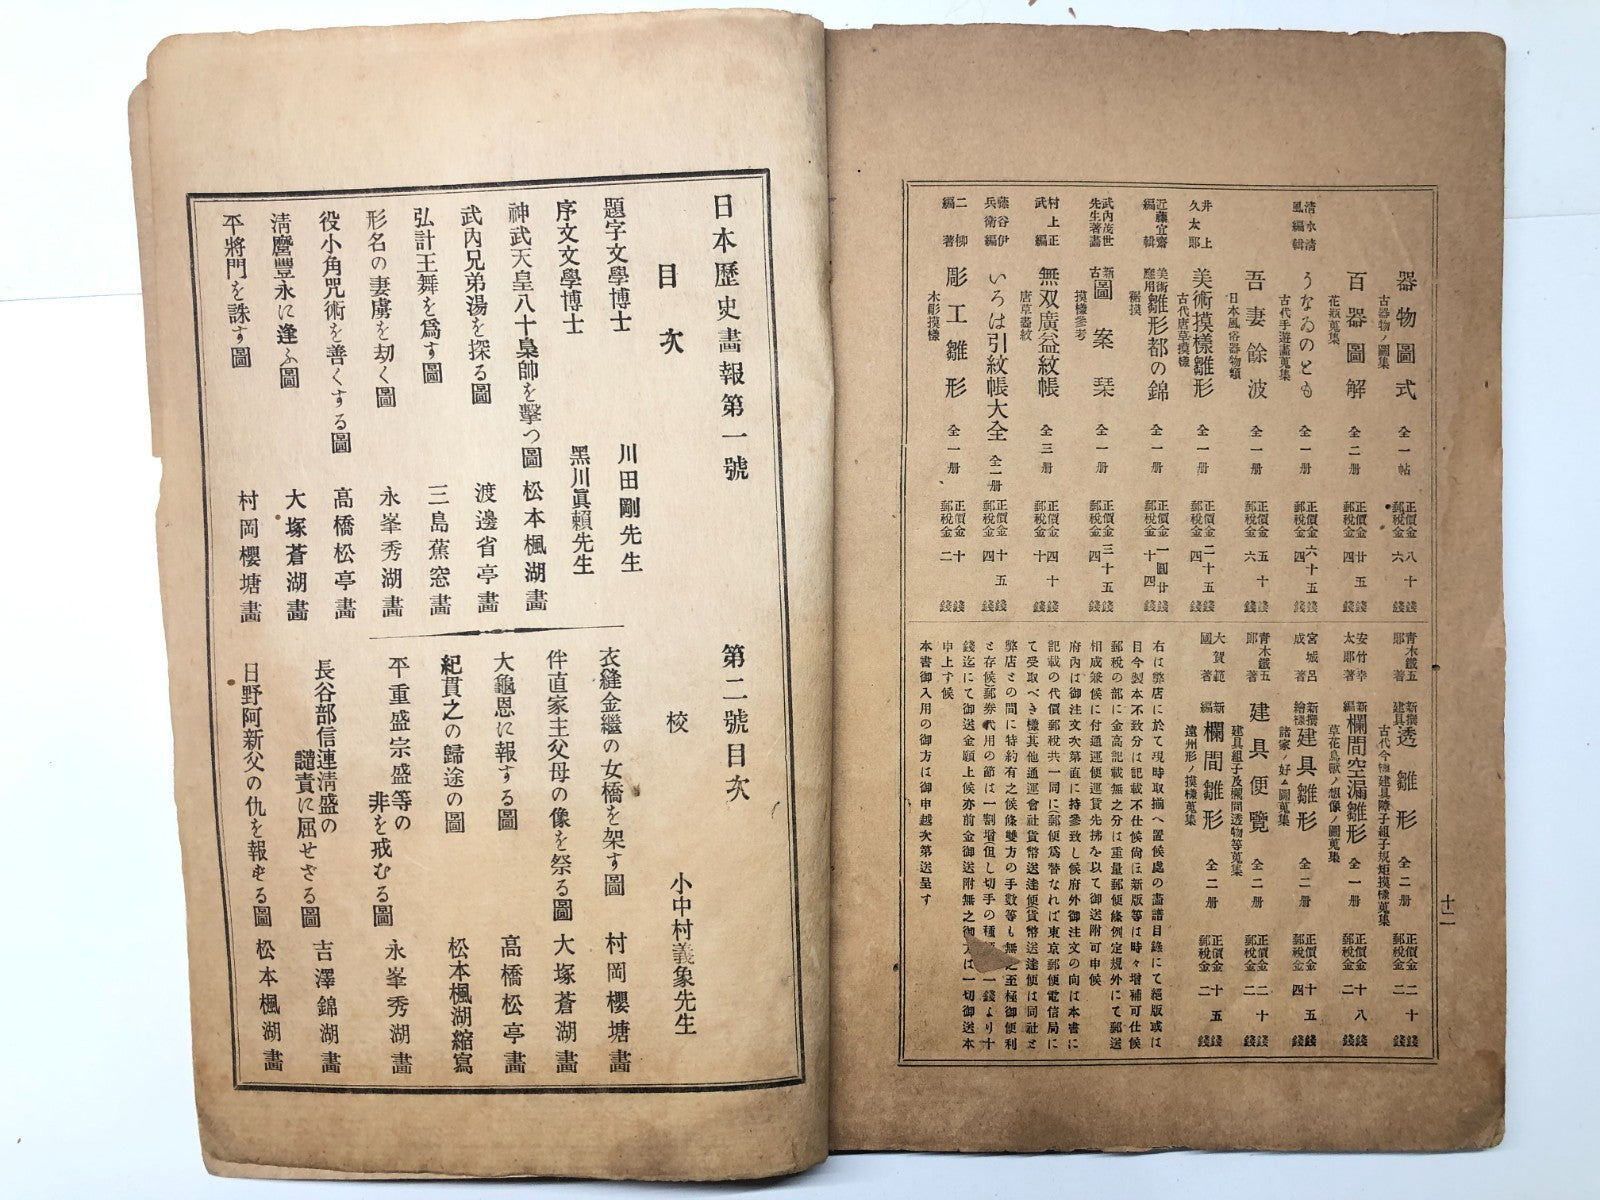 器物圖式 古器物ノ圖集 全一帖 正價金八十錢 郵稅金六錢
清水淸風編輯
百器圖解 花瓶蒐集 全二册 正價金廿五錢 郵稅金四錢
うなゐのとも 古代手遊畵蒐集 全一册 正價金六十五錢 郵稅金四錢
吾妻餘波 日本風俗器物類 全一册 正價金五十錢 郵稅金六錢
井上久太郎
美術摸樣雛形 古代唐草摸樣 全一册 正價金二十五錢 郵稅金四錢
近藤宜齋編輯
美術應用雛形都の錦 裾摸 全一册 正價金一圓廿錢 郵稅金十四錢
武內茂世先生著畵
新古圖案栞 摸樣參考 全一册 正價金三十五錢 郵稅金四錢
村上正武編
無双廣益紋帳 唐草畵紋 全三册 正價金四十錢 郵稅金十錢
藤谷伊兵衛編
いろは引紋帳大全 全一册 正價金十五錢 郵稅金四錢
二柳編著
彫工雛形 木彫摸樣 全一册 正價金十錢 郵稅金二錢
青木鐵五郎著 新撰建具透雛形 古代今樣建具障子組子規矩摸樣蒐集 全二册 正價金二十錢 郵稅金二錢
安竹幸太郎著 新編欄間空漏雛形 草花鳥獸ノ想像ノ圖蒐集 全一册 正價金十八錢 郵稅金二錢
宮城呂成著 新撰繪樣建具雛形 諸家ノ好ム圖蒐集 全二册 正價金十五錢 郵稅金四錢
青木鐵五郎著 建具便覽 建具組子及欄間透物等蒐集 全二册 正價金二十錢 郵稅金二錢
大賀範國著 新編欄間雛形 遠州形ノ摸樣蒐集 全二册 正價金十五錢 郵稅金二錢
右は弊店に於て現時取揃へ置候處の畵譜目錄にて絕版或は
目今製本不致分は記載不仕候尙ほ新版等は時々增補可仕候
郵稅の部に金高記載無之分は重量郵便條例定規外にて郵送
相成兼候に付通運便運賃先拂を以て御送附可申候
府內は御注文次第直に持參致し候府外御注文の向は本書に
記載の代價郵稅共一同に(郵便爲替なれば東京郵便電信局に
て受取べき樣其他通運會社貨幣送達便(貨幣送達便は同社と
弊店との間に特約有之候條雙方の手數等も無之至極御便利
と存候)郵券代用の節は一割增(但し切手の種 一錢より十
錢迄にて御送金願上候亦前金御送附無之御方は一切御送本
申上ず候
本書御入用の御方は御申越次第送呈す
十二
日本歷史畫報第一號
目次
題字文學博士 川田剛先生
序文文學博士 黑川眞賴先生
神武天皇八十梟帥を擊つ圖 松本楓湖畵
武內兄弟湯を探る圖 渡邊省亭畵
弘計王舞を爲す圖 三島蕉窓畵
形名の妻虜を劫く圖 永峯秀湖畵
役小角咒術を善くする圖 髙橋松亭畵
淸麿豐永に逢ふ圖 大塚蒼湖畵
平將門を誅す圖 村岡櫻塘畵
第二號目次
校 小中村義象先生
衣縫金繼の女橋を架す圖 村岡櫻塘畵
伴直家主父母の像を祭る圖 大塚蒼湖畵
大龜恩に報する圖 髙橋松亭畵
紀貫之の歸途の圖 松本楓湖縮寫
平重盛宗盛等の非を戒むる圖 永峯秀湖畵
長谷部信連淸盛の譴責に屈せざる圖 吉澤錦湖畵
日野阿新父の仇を報ずる圖 松本楓湖畵